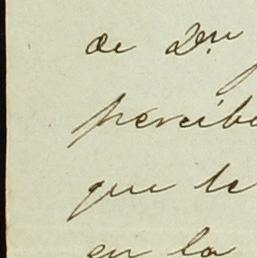 de Dn
percibe
que le
en la